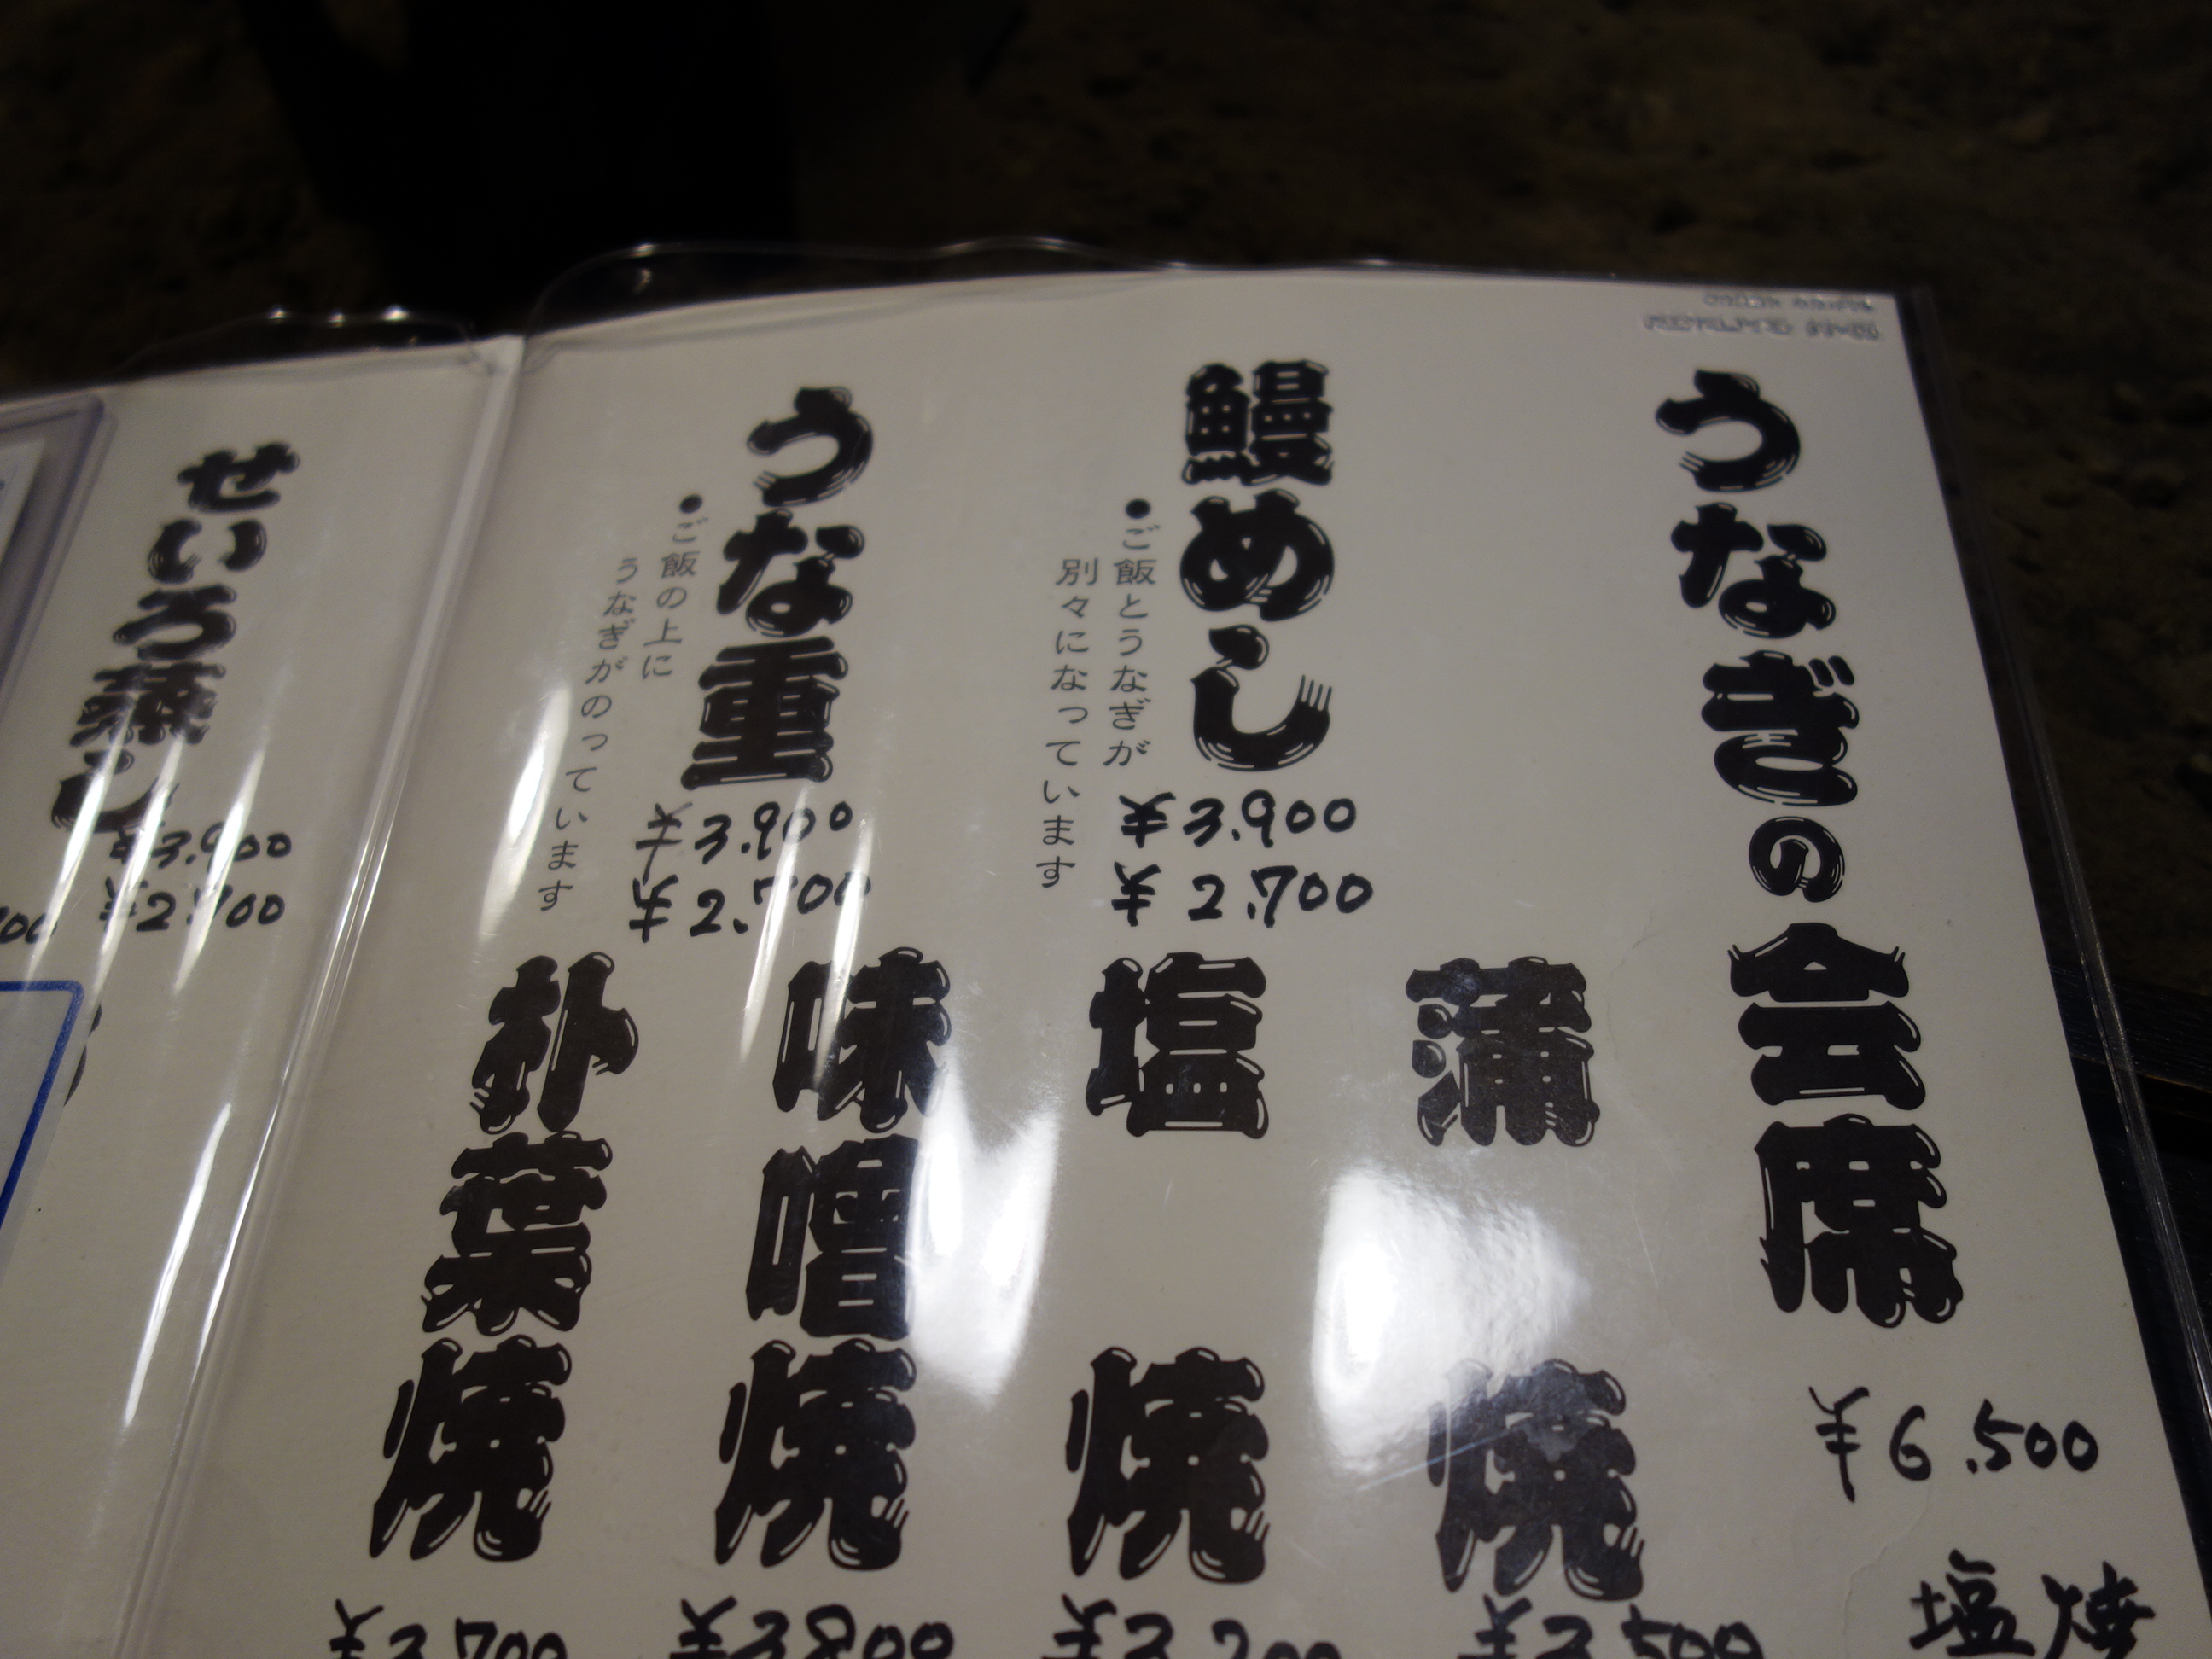 うなぎの会席
¥6,500
塩焼
鰻めし
●ご飯とうなぎが
別々になっています
¥3,900
¥2,700
うな重
●ご飯の上に
うなぎがのっています
¥3,900
¥2,700
蒲焼
塩焼
味噌焼
朴葉焼
せいろ蒸し
¥3,900
¥2,700